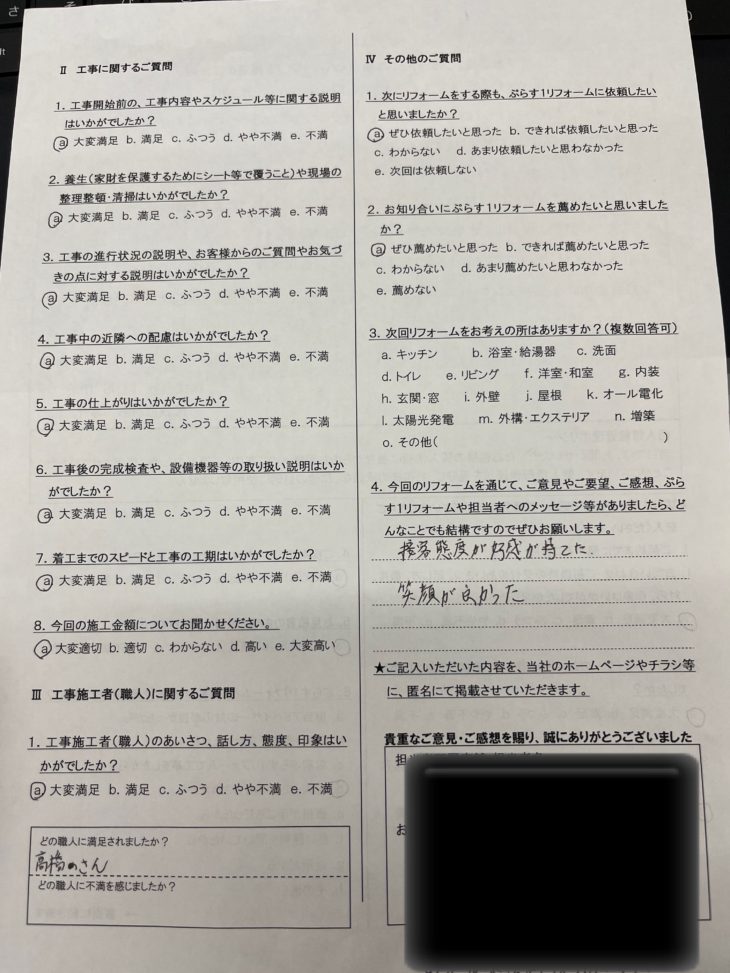 Ⅱ 工事に関するご質問
1. 工事開始前の、工事内容やスケジュール等に関する説明
はいかがでしたか?
a 大変満足 b. 満足 c. ふつう d. やや不満 e. 不満
2. 養生(家財を保護するためにシート等で覆うこと)や現場の
整理整頓・清掃はいかがでしたか?
a 大変満足 b. 満足 c. ふつう d. やや不満 e. 不満
3. 工事の進行状況の説明や、お客様からのご質問やお気づ
きの点に対する説明はいかがでしたか?
a 大変満足 b. 満足 c. ふつう d. やや不満 e. 不満
4. 工事中の近隣への配慮はいかがでしたか?
a 大変満足 b. 満足 c. ふつう d. やや不満 e. 不満
5. 工事の仕上がりはいかがでしたか?
a 大変満足 b. 満足 c. ふつう d. やや不満 e. 不満
6. 工事後の完成検査や、設備機器等の取り扱い説明はいか
がでしたか?
a 大変満足 b. 満足 c. ふつう d. やや不満 e. 不満
7. 着工までのスピードと工事の工期はいかがでしたか?
a 大変満足 b. 満足 c. ふつう d. やや不満 e. 不満
8. 今回の施工金額についてお聞かせください。
a 大変適切 b. 適切 c. わからない d. 高い e. 大変高い
Ⅲ 工事施工者(職人)に関するご質問
1. 工事施工者(職人)のあいさつ、話し方、態度、印象はい
かがでしたか?
a 大変満足 b. 満足 c. ふつう d. やや不満 e. 不満
どの職人に満足されましたか?
高橋のさん
どの職人に不満を感じましたか?
Ⅳ その他のご質問
1. 次にリフォームをする際も、ぷらす1リフォームに依頼したい
と思いましたか?
a ぜひ依頼したいと思った b. できれば依頼したいと思った
c. わからない d. あまり依頼したいと思わなかった
e. 次回は依頼しない
2. お知り合いにぷらす1リフォームを薦めたいと思いました
か?
a ぜひ薦めたいと思った b. できれば薦めたいと思った
c. わからない d. あまり薦めたいと思わなかった
e. 薦めない
3. 次回リフォームをお考えの所はありますか?(複数回答可)
a. キッチン b. 浴室・給湯器 c. 洗面
d. トイレ e. リビング f. 洋室・和室 g. 内装
h. 玄関・窓 i. 外壁 j. 屋根 k. オール電化
l. 太陽光発電 m. 外構・エクステリア n. 増築
o. その他( )
4. 今回のリフォームを通じて、ご意見やご要望、ご感想、ぷら
す1リフォームや担当者へのメッセージ等がありましたら、ど
んなことでも結構ですのでぜひお願いします。
接客態度が好感が持てた.
笑顔が良かった
★ご記入いただいた内容を、当社のホームページやチラシ等
に、匿名にて掲載させていただきます。
貴重なご意見・ご感想を賜り、誠にありがとうございました
担
お